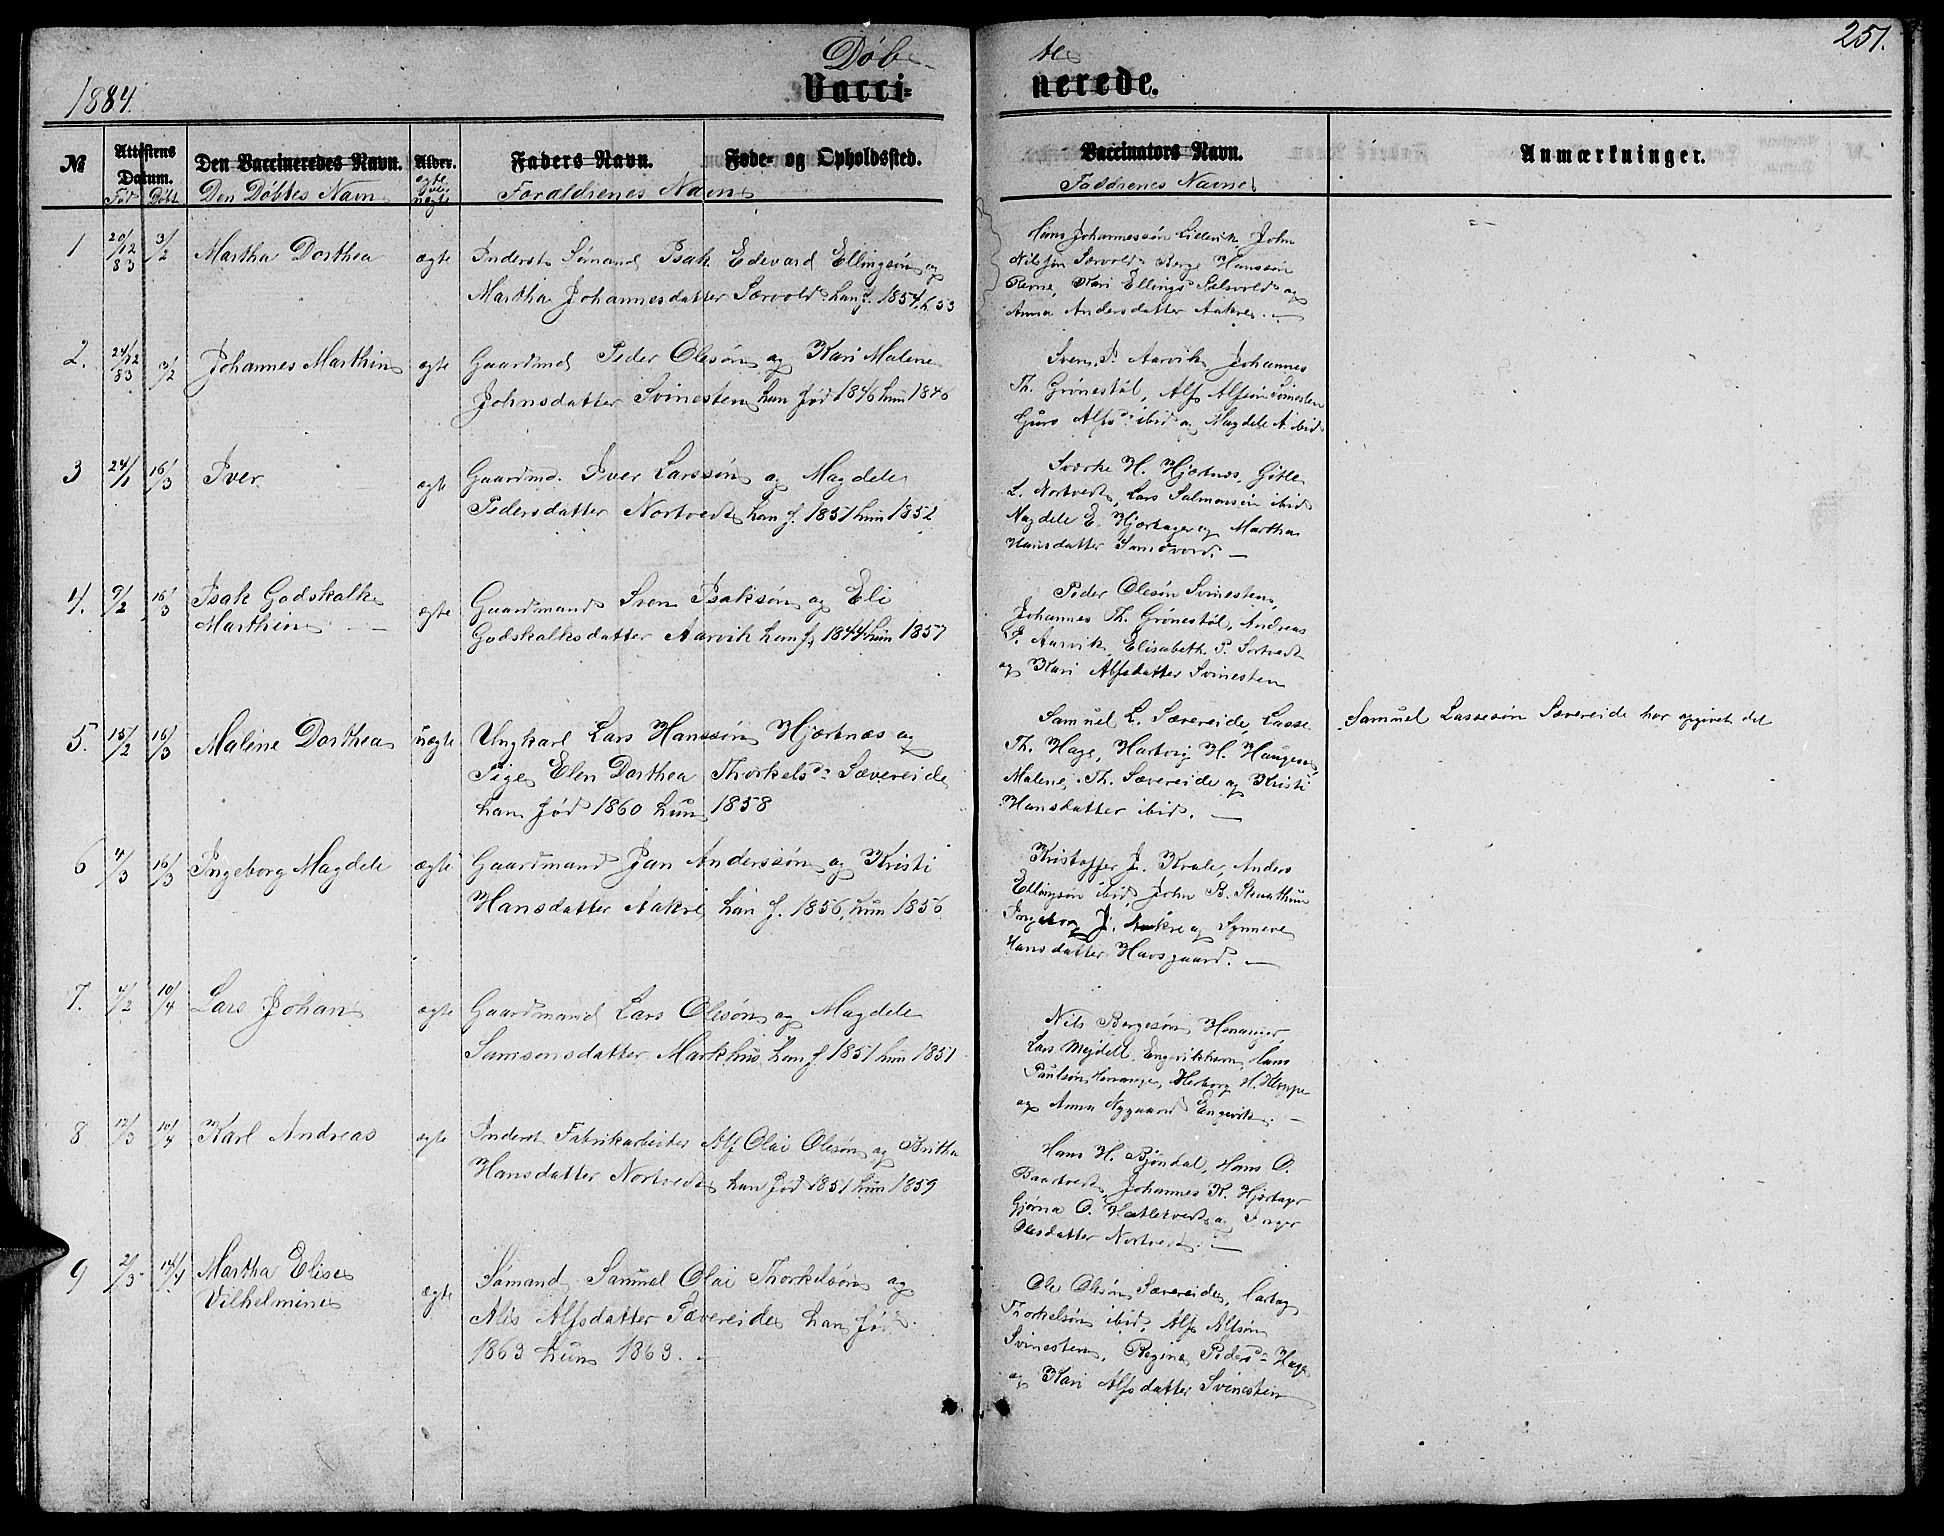 251.
1884.
Døb- te
Vacci- nerede.
No Attestens Datum. Den Vaccineredes Navn. Alder. Faders Navn. Føde- og Opholdssted. Vaccinators Navn. Anmærkninger.
Fød Døbt Den Døbtes Navn ægte uægte Forældrenes Navne Faddrenes Navne
1 20/12 83 3/2 Martha Dorthea ægte Inderst Sømand Isak Edevard Ellingsøn og
Martha Johannesdatter Særvold han f. 1854 h. 53
Hans Johannessøn Liderik, John
Nilssøn Særvold Berge Hanssøn
Kari Ellings og
Anna Andersdatter Aakre. —
2. 24/12 83 3/2 Johannes Marthin ægte Gaardmd Peder Olesøn og Kari Malene
Johnsdatter Svinesten han fød 1846 hun 1846
Sven I. Aarvik, Johannes
Th. Grønestøl, Alf Alfsøn Svinesten
Guro Alfsd: ibid og Magdele A. ibid
3 24/1 16/3 Iver ægte Gaardmd. Iver Larssøn og Magdele
Pedersdatter Nortvedt han f. 1851 hun 1852
H. Hjørtnæs, Gitle
L. Nortvedt, Lars Salmonsøn ibid
Magdele E. Hjortager og Martha
Hansdatter Sandvord. —
4. 9/2 16/3 Isak Godskalk
Marthin — ægte Gaardmand Sven Isaksøn og Eli
Godskalksdatter Aarvik han f. 1844 hun 1857
Peder Olesøn Svinesten,
Johannes Th. Grønestøl, Andreas
I. Aarvik, Elisabeth P. Tortvedt
og Kari Alfsdatter Svinesten
5. 15/2 16/3 Malene Dorthea uægte Ungkarl Lars Hanssøn Hjørtnæs og
Pige Elen Dorthea Thorkelsd: Sævereide
han fød 1860 hun 1858
Samuel L. Sævereide, Lasse
Th. Hage, Hartvig H. Haugen,
Malene Th. Sævereide og Kristi
Hansdatter ibid. —
Samuel Lassesøn Sævereide har opgivet det
6 4/3 16/3 Ingeborg Magdele ægte Gaardmand Jan Anderssøn og Kristi
Hansdatter Aakre han f. 1856, hun 1856
Kristoffer J. Kvale, Anders
Ellingsøn ibid, John B. Skaathun
Ingeborg J. Aakre og Synneve
Hansdatter Havsgaard. —
7. 4/2 10/4 Lars Johan ægte Gaardmand Lars Olesøn og Magdele
Samsonsdatter Markhus han f 1851 hun 1851
Nils Bergesøn Henanger,
Lars Mejdell Engevikhavn, Hans
Paulsøn Henanger, Herborg H. Heggø
og Anna Nygaard Engevik. —
8 12/3 10/4 Karl Andreas ægte Inderst Fabrikarbeider Alf Olai Olesøn og Britha
Hansdatter Nortvedt han fød 1851 hun 1859
Hans H. Bjøndal, Hans O.
Baartvedt, Johannes K. Hjortager
Gjøna O. og Inger
Olesdatter Nortvedt. —
9 2/3 14/4 Martha Elise
Vilhelmine ægte Sømand Samuel Olai Thorkelsøn og
Alis Alfsdatter Sævereide han fød
1863 hun 1863. —
Ole Olesøn Sævereide,
Thorkelsøn ibid, Alf Alfsøn
Svinesten, Regine Pedersd: Hage
og Kari Alfsdatter Svinesten